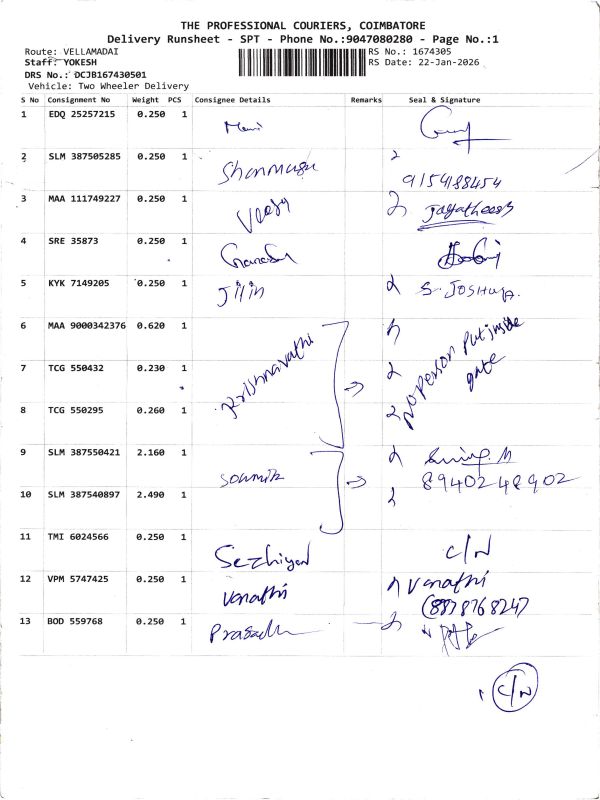 THE PROFESSIONAL COURIERS, COIMBATORE
Delivery Runsheet - SPT - Phone No.:9047080280 - Page No.:1
Route: VELLAMADAI RS No.: 1674305
Staff: YOKESH RS Date: 22-Jan-2026
DRS No.: DCJB167430501
Vehicle: Two Wheeler Delivery
S No Consignment No Weight PCS Consignee Details Remarks Seal & Signature
1 EDQ 25257215 0.250 1 Mani
2 SLM 387505285 0.250 1 Shanmuga
9154188454
3 MAA 111749227 0.250 1 Jayatheesh
4 SRE 35873 0.250 1 Ganesh
5 KYK 7149205 0.250 1 Jilin S. JOSHUA.
6 MAA 9000342376 0.620 1
7 TCG 550432 0.230 1 Krishnavathi No person Put inside gate
8 TCG 550295 0.260 1
9 SLM 387550421 2.160 1 Sowmik
8940248902
10 SLM 387540897 2.490 1
11 TMI 6024566 0.250 1 Sezhiyan C/N
12 VPM 5747425 0.250 1 Vanathi Vanathi
(8878768247
13 BOD 559768 0.250 1 Prasadh
C/N